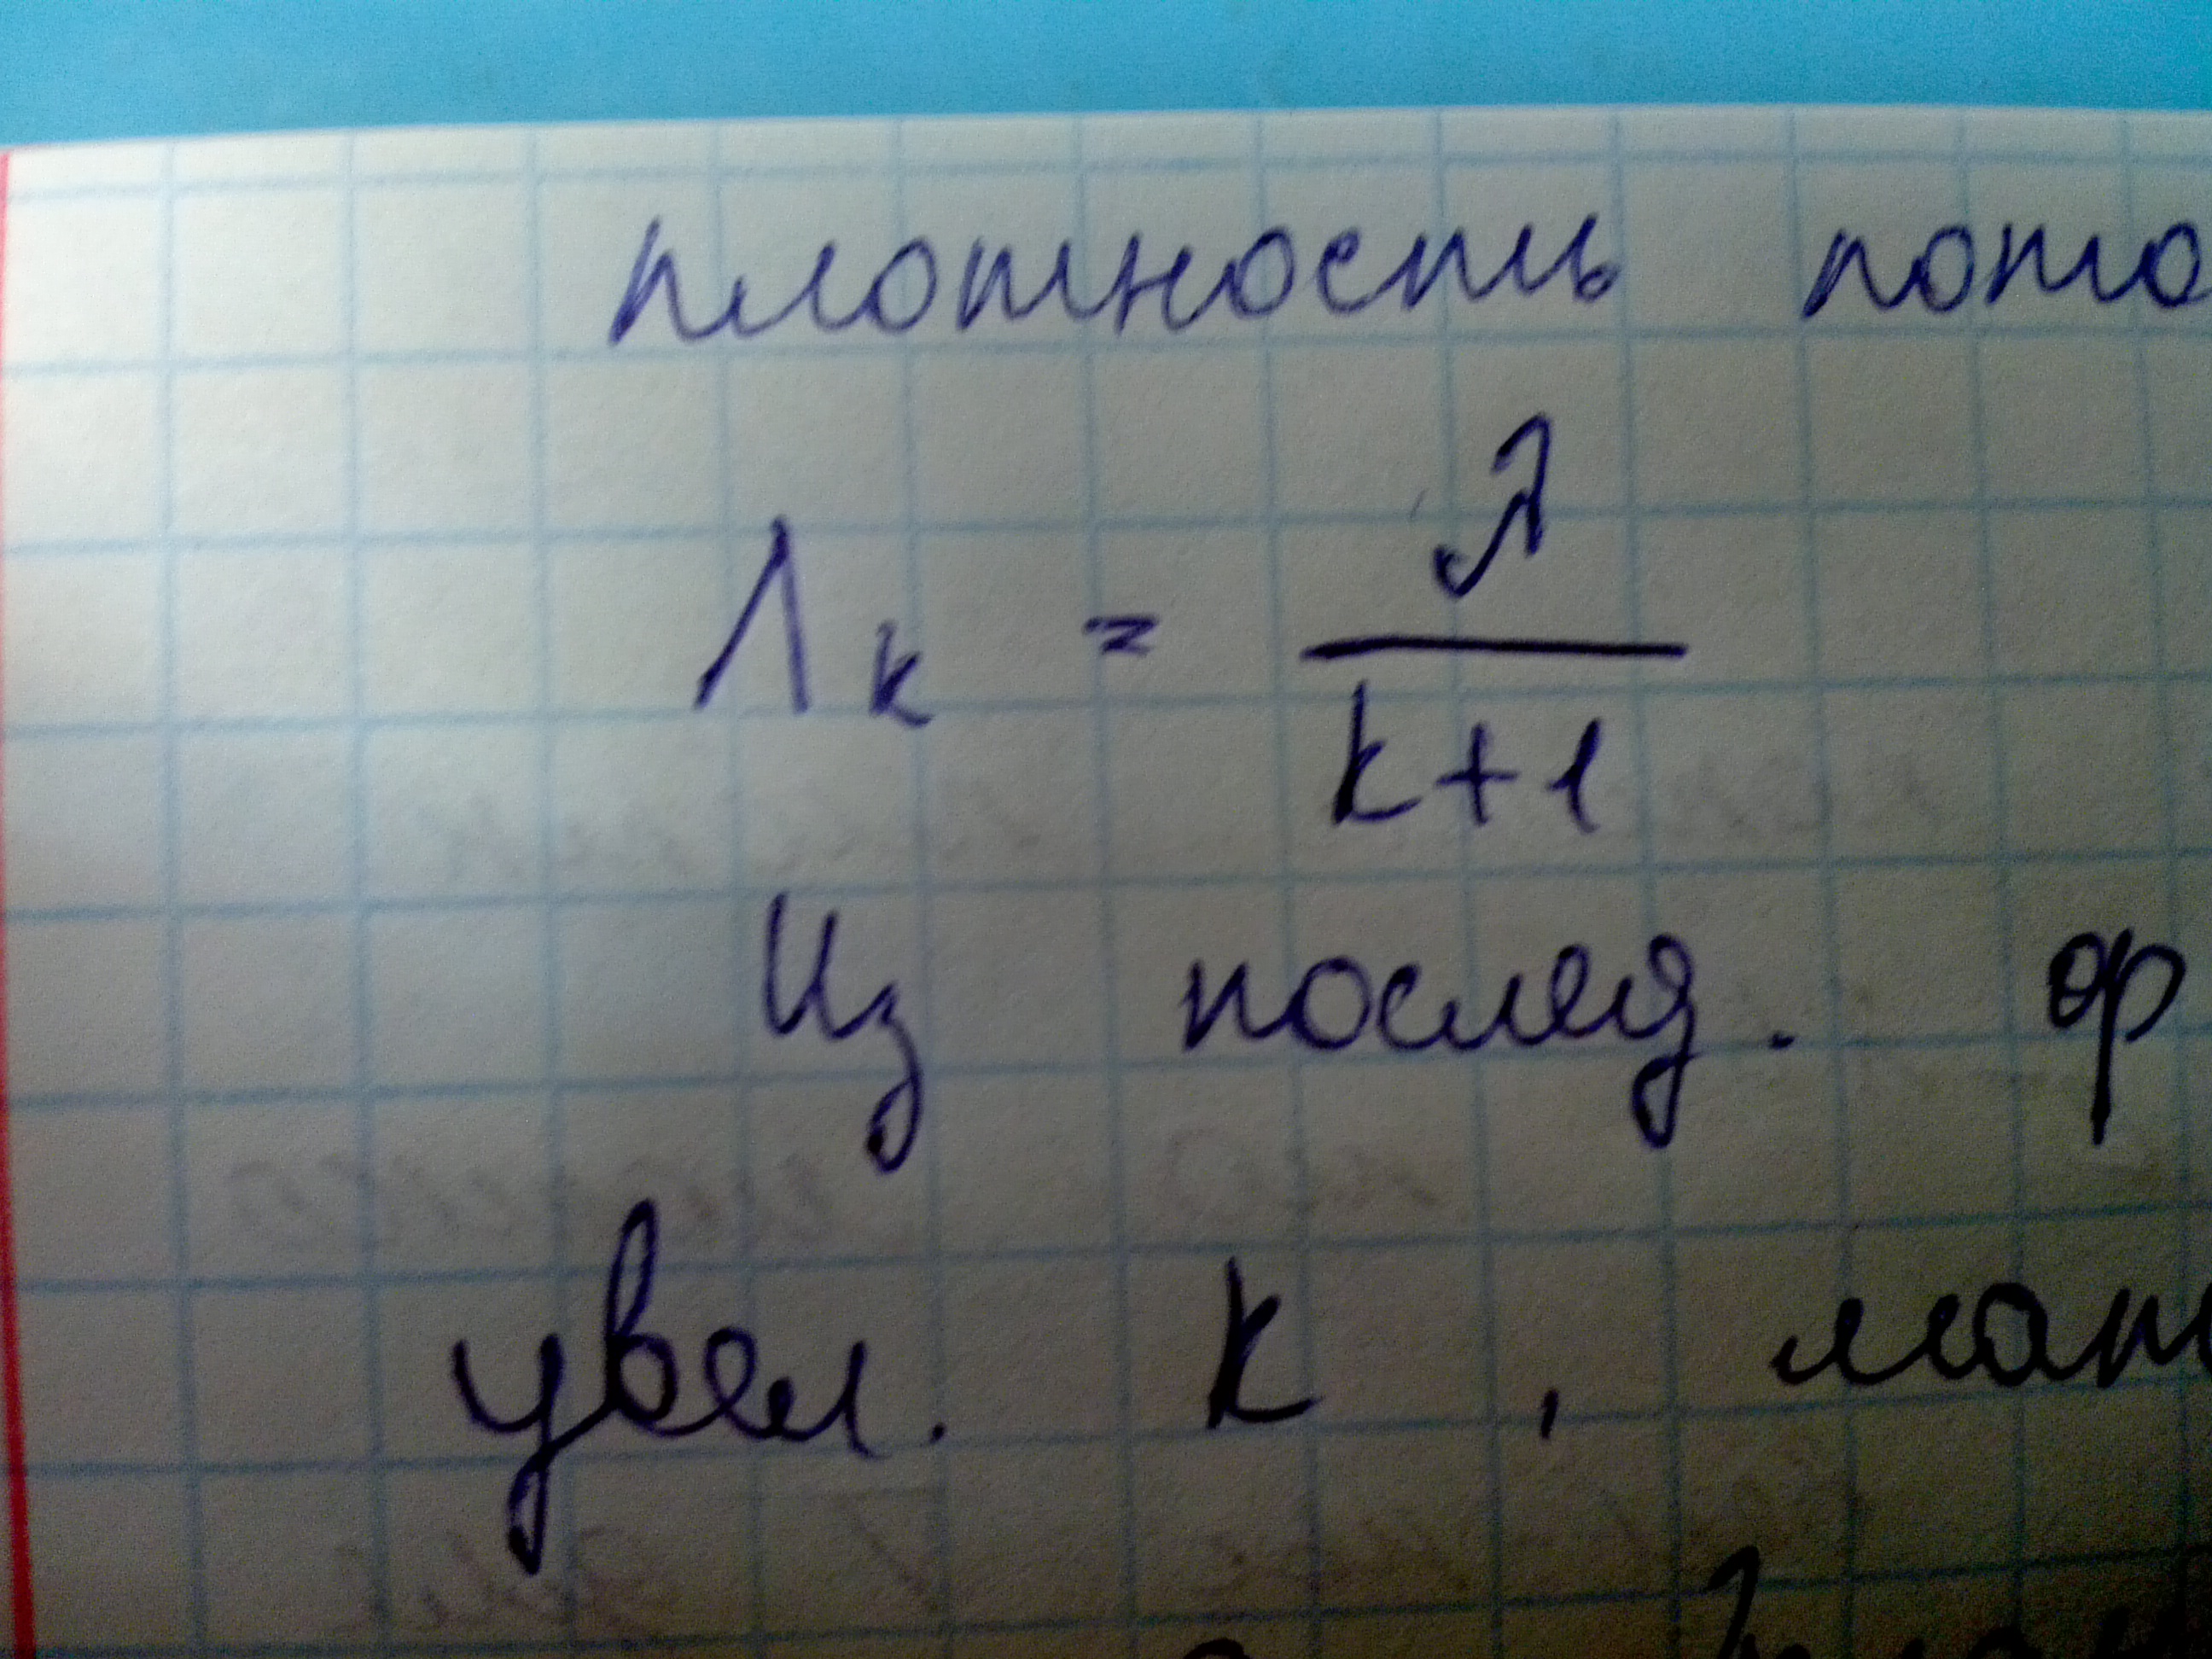 плотность пото
Λk = λ / k+1
Из послед. ф
увел. k , мат